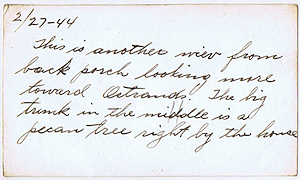 2/27-44
This is another view from
back porch looking more
toward Ostrands. The big
trunk in the middle is a
pecan tree right by the house